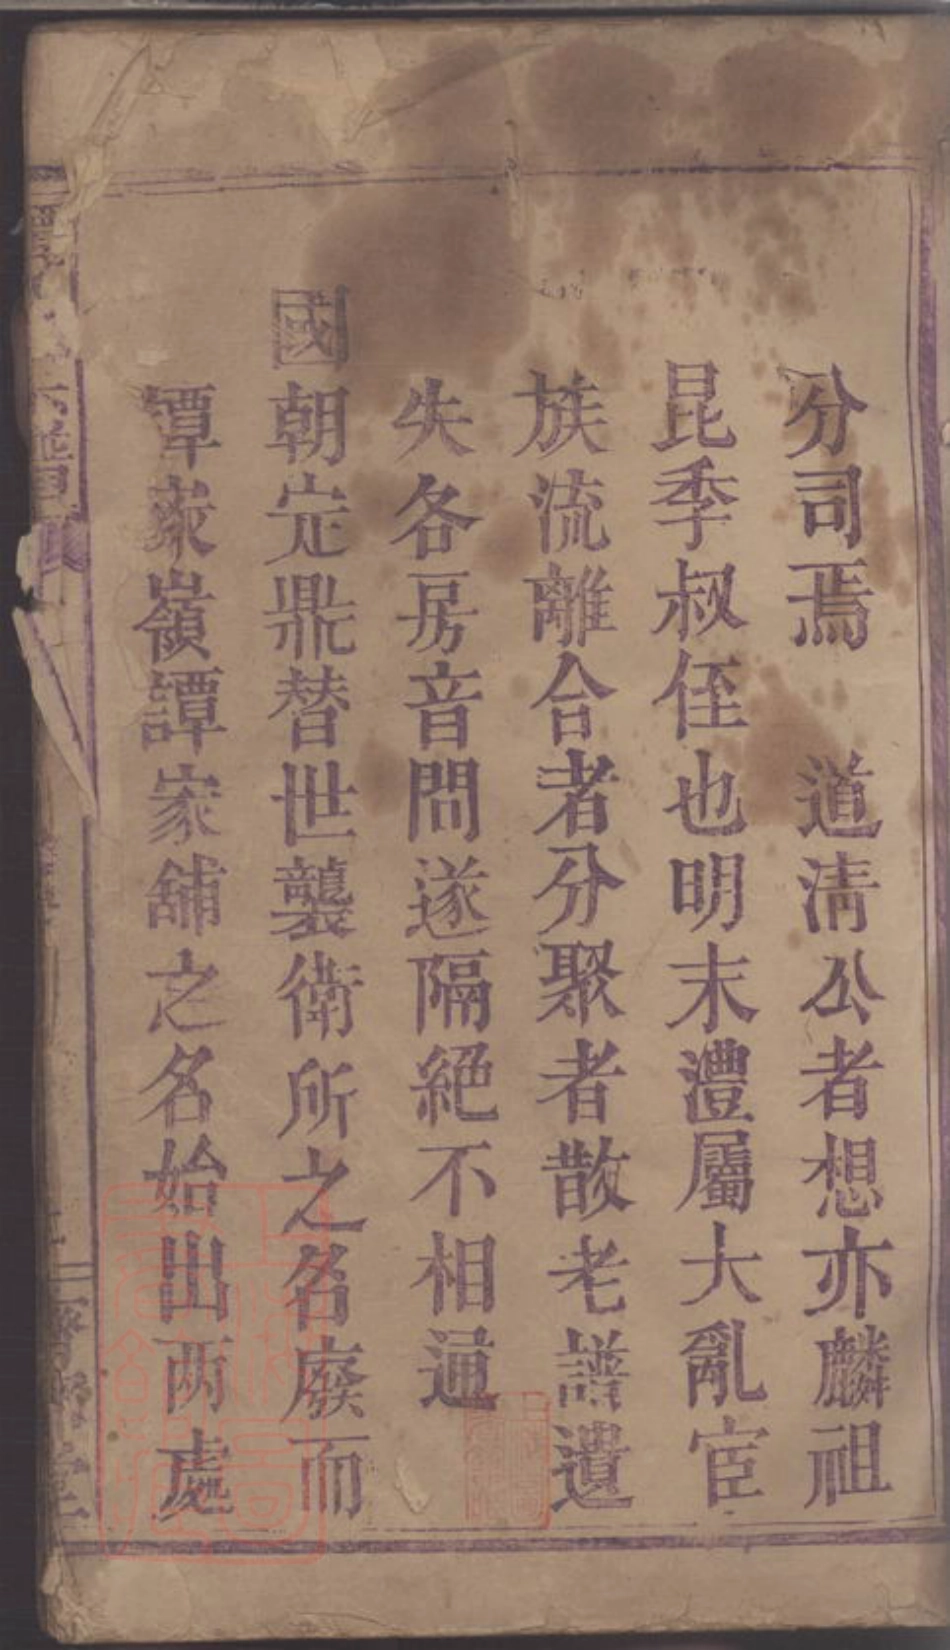 分司焉　道清公者想亦麟祖
昆季叔侄也明末澧屬大亂宦
族流離合者分聚者散老譜遺
失各房音問遂隔絕不相通
國朝定鼎替世襲衛所之名廢而
譚家嶺譚家舖之名始出兩處